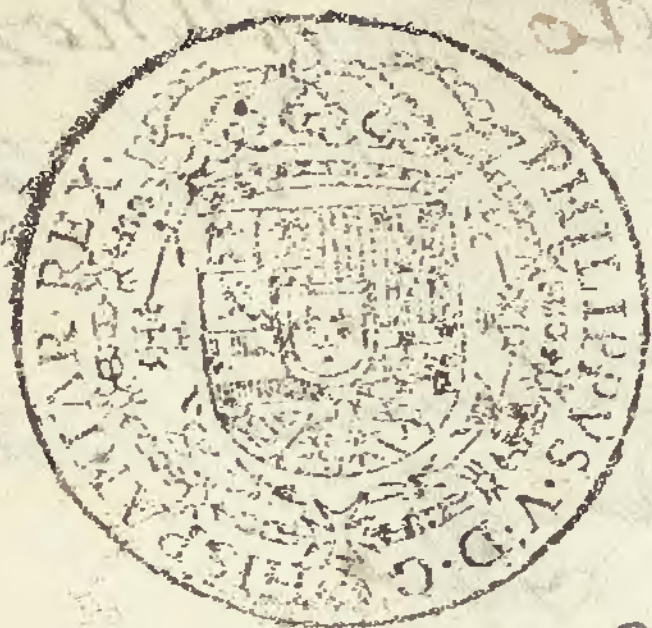 PHILIPPUS·V·D·G· HISPANIAR·REX·